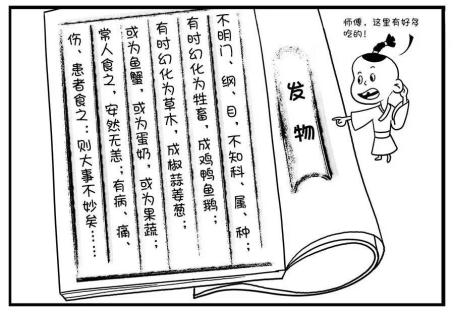 师傅，这里有好多
吃的！
发物
不明门、纲、目，不知科、属、种；
有时幻化为牲畜，成鸡鸭鱼鹅；
有时幻化为草木，成椒蒜姜葱；
或为鱼蟹，或为蛋奶，或为果蔬；
常人食之，安然无恙；有病、痛、
伤、患者食之；则大事不妙矣……